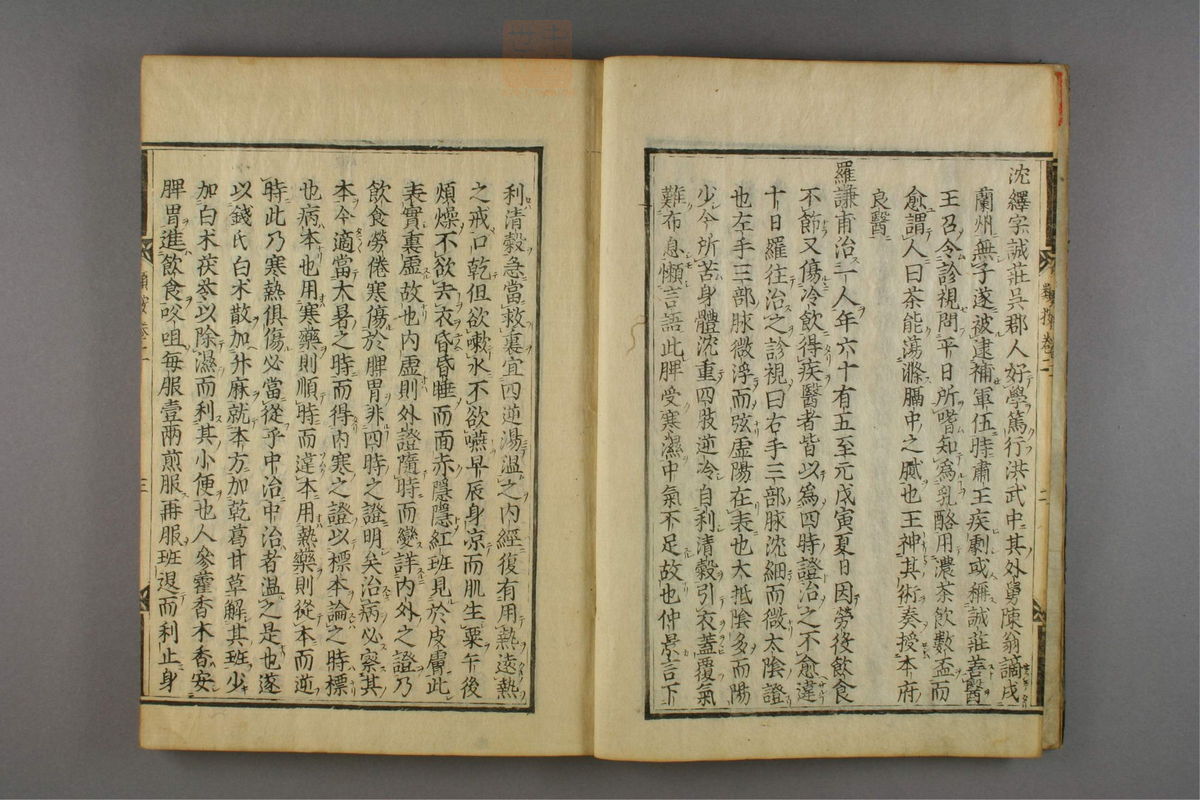 沈繹字誠莊吳郡人好學篤行洪武中其外舅陳翁謫戌
蘭州無子遂被逮補軍伍時肅王疾劇或稱誠莊善醫
王召令診視問平日所嗜知爲乳酪用濃茶飲數盃而
愈謂人曰茶能蕩滌膈中之膩也王神其術奏授本府
良醫
羅謙甫治一人年六十有五至元戊寅夏日因勞役飲食
不節又傷冷飲得疾醫者皆以爲四時證治之不愈違
十日羅往治之診視曰右手三部脉沈細而微太陰證
也左手三部脉微浮而弦虛陽在表也大抵陰多而陽
少今所苦身體沈重四肢逆冷自利清穀引衣蓋覆氣
難布息懶言語此脾受寒濕中氣不足故也仲景言下
利清穀急當救裏宜四逆湯溫之内經復有用熱遠熱
之戒口乾但欲嗽水不欲嚥早辰身凉而肌生粟午後
煩燥不欲去衣昏昏睡而面赤隱隱紅班見於皮膚此
表實裏虛故也内虛則外證隨時而變詳内外之證乃
飲食勞倦寒傷於脾胃非四時之證明矣治病必察其
本今適當大暑之時而得内寒之證以標本論之時標
也病本也用寒藥則順時而違本用熱藥則從本而逆
時此乃寒熱俱傷必當從乎中治中治者溫之是也遂
以錢氏白朮散加升麻就本方加乾葛甘草解其班少
加白朮茯苓以除濕而利其小便也人參藿香木香安
脾胃進飲食㕮咀每服壹兩煎服再服班退而利止身